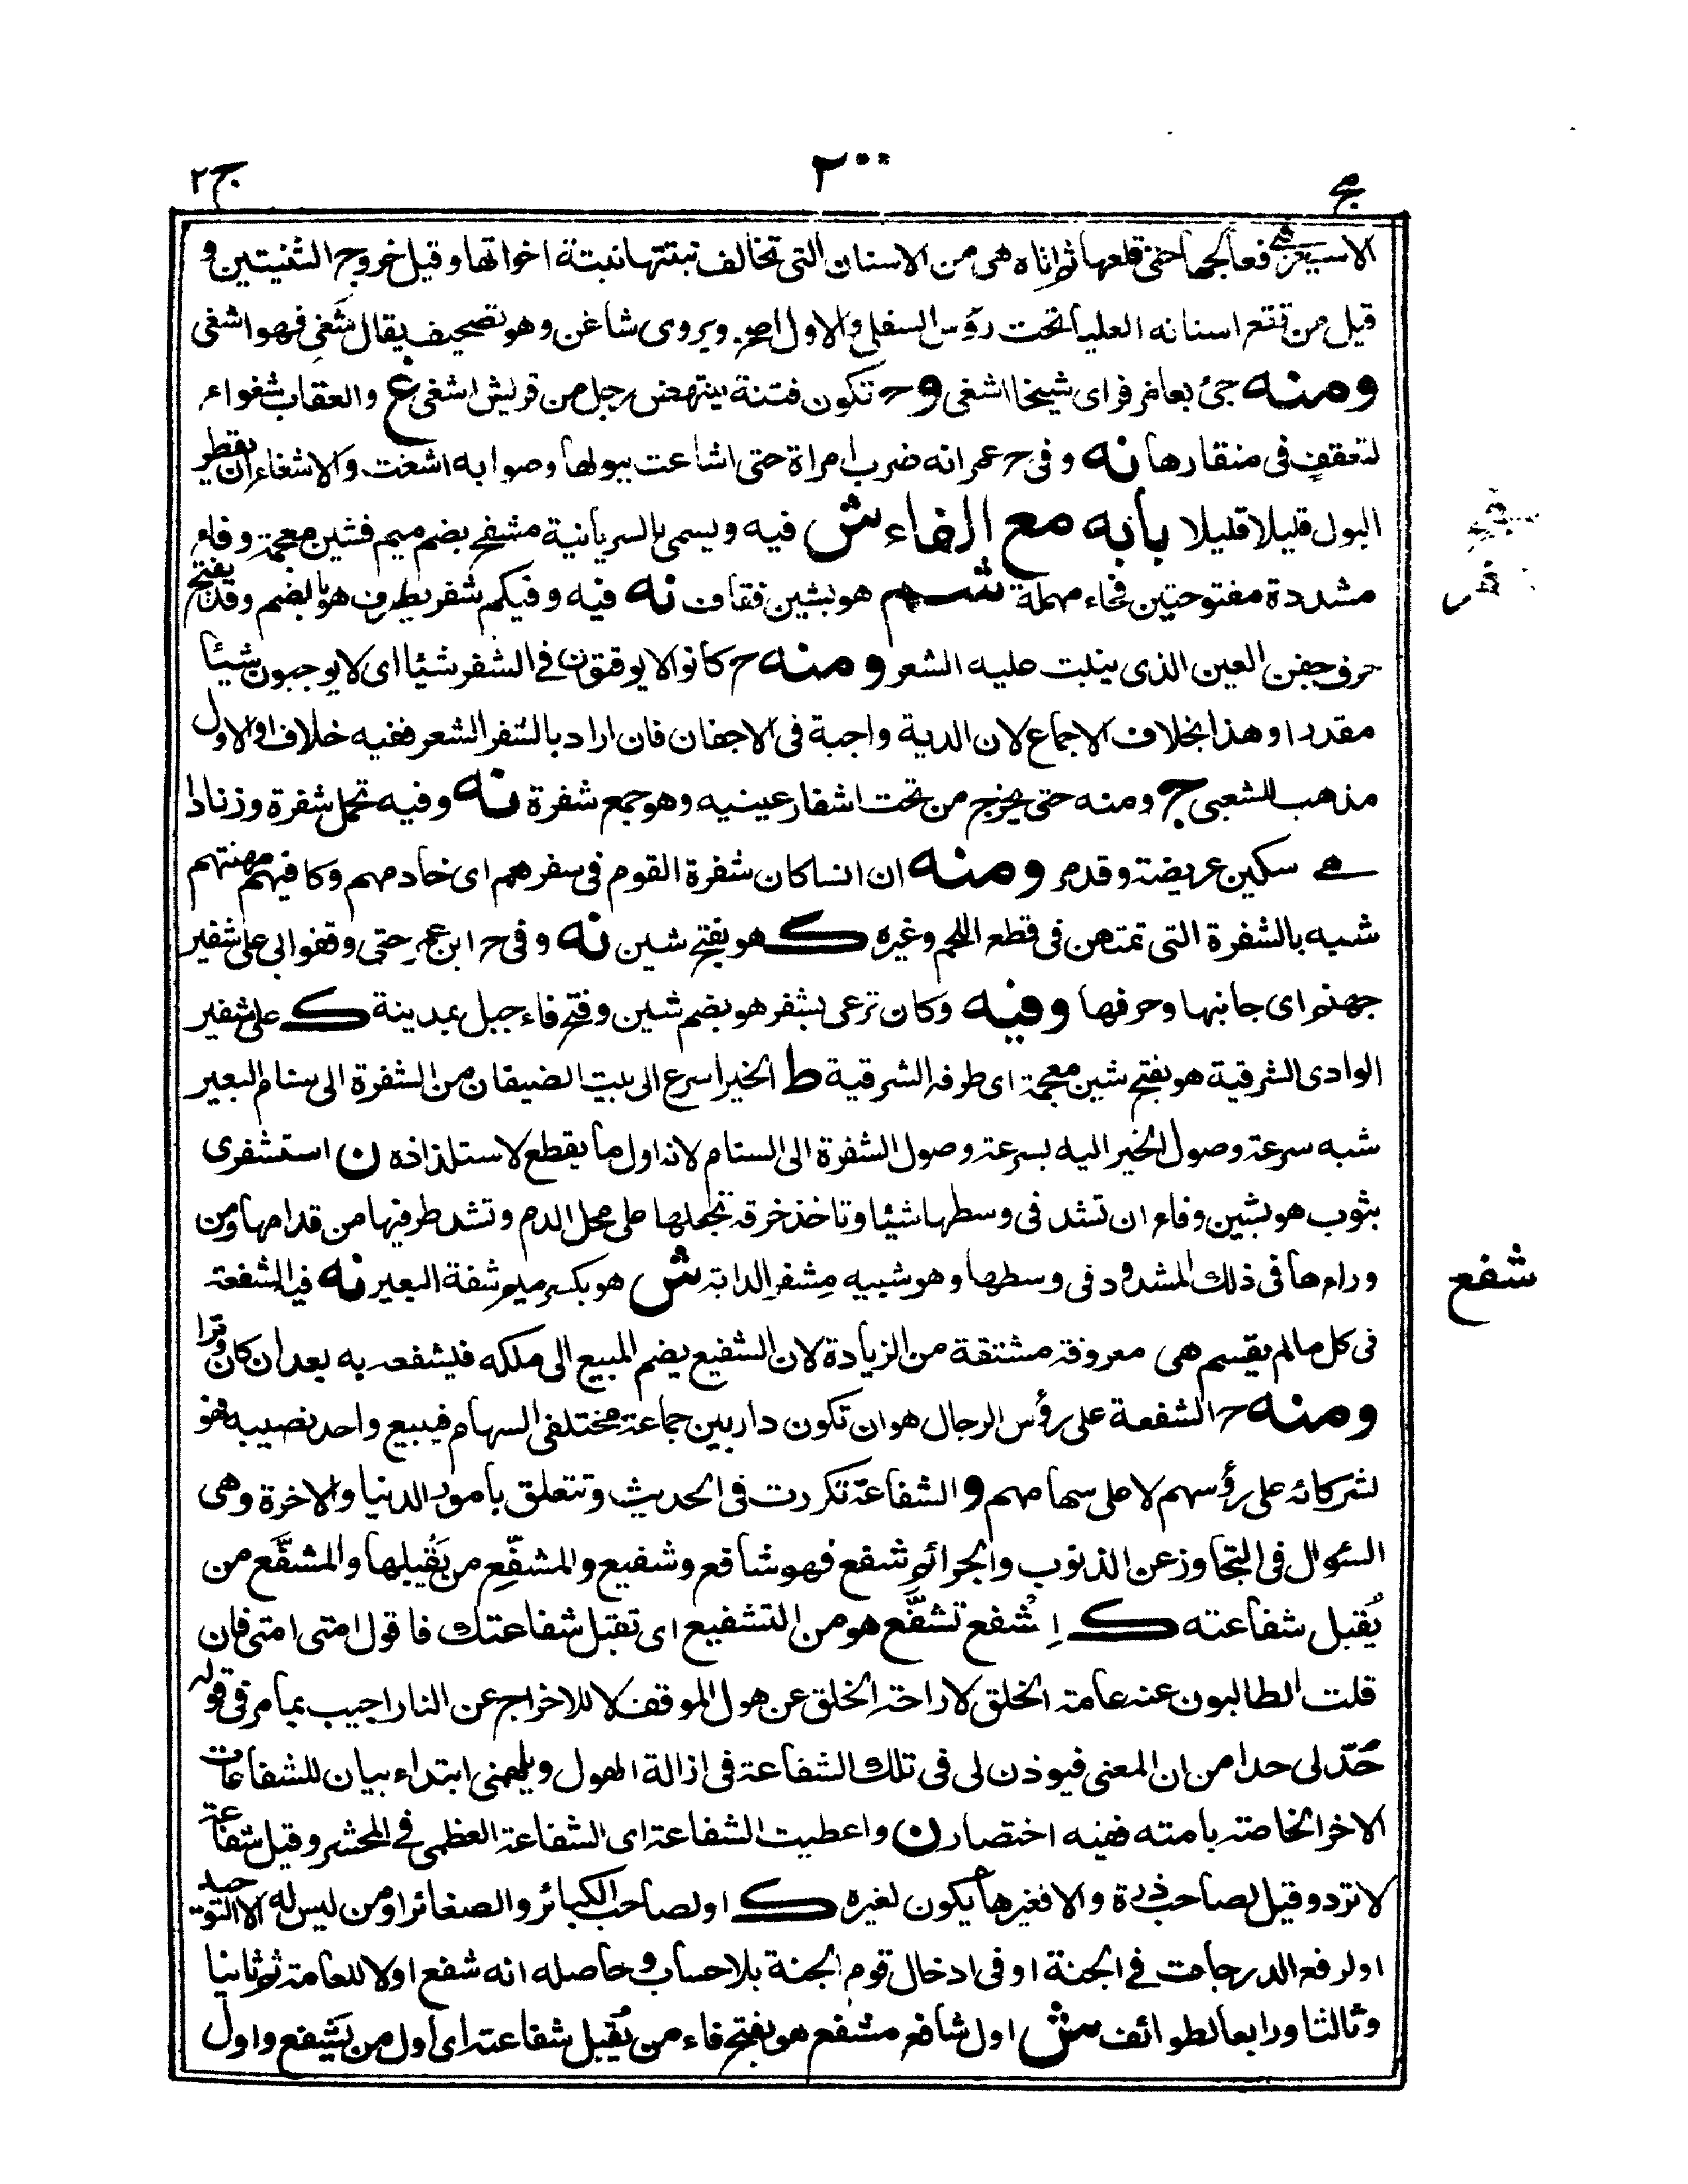 ج٢
٢٠٠
مج
الاسيغن فعالجها حتى قلعها ثم اتاه هى من الاسنان التى تخالف نبتتها نبتة اخواتها وقيل خروج الثنيتين و
قيل من تقع اسنانه العليا تحت رؤس السفلى والاول اصح ويروى شاغن وهو تصحيف يقال شَغِى فهو اشغى
ومنه جئ بعامر فراى شيخا اشغى و ح تكون فتنة ينهض رجل من قريش اشغى غ والعقاب شغواء
لتعقف فى منقارها نه وفى ح عمر انه ضرب امراة حتى اشاعت ببولها وصوابه اشغت والاشغاء ان يقطر
البول قليلا قليلا بابه مع الفاء ش فيه ويسمى بالسريانية مشفح بضم ميم فشين معجمة وفاء
مشددة مفتوحتين فحاء مهملة شم هو بشين فقاف نه فيه وفيكم شفر يطرف هو بالضم وقد يفتح
حرف جفن العين الذى ينبت عليه الشعر ومنه ح كانوا لا يوقتون فى الشفر شيئا اى لا يوجبون شيئا
مقدرا وهذا بخلاف الاجماع لان الدية واجبة فى الاجفان فان اراد بالشفر الشعر ففيه خلاف او الاول
مذهب للشعبى ج ومنه حتى يخرج من تحت اشفار عينيه وهو جمع شفرة نه وفيه تحمل شفرة وزنادا
هى سكين عريضة وقد مر ومنه ان انسا كان شفرة القوم فى سفرهم اى خادمهم وكافيهم مهنتهم
شبه بالشفرة التى تمتهن فى قطع اللحم وغيره ك هو بفتح شين نه وفى ح ابن عمر حتى وقفوا بى على شفير
جهنم اى جانبها وحرفها وفيه وكان ترعى بشفر هو بضم شين وفتح فاء جبل بمدينة ك على شفير
الوادى الشرقية هو بفتح شين معجمة اى طرفه الشرقية ط الخير اسرع الى بيت الضيفان من الشفرة الى سنام البعير
شبه سرعة وصول الخير اليه بسرعة وصول الشفرة الى السنام لانه اول ما يقطع لاستلذاذه ن استشفرى
بثوب هو بشين وفاء ان تشد فى وسطها شيئا وتاخذ خرقة تجعلها على محل الدم وتشد طرفيها من قدامها ومن
وراءها فى ذلك المشدود فى وسطها وهو شبيه مِشفر الدابة ش هو بكسر ميم شفة البعير نه فيه الشفعة
شفع
فى كل مالم يقسم هى معروفة مشتقة من الزيادة لان الشفيع يضم المبيع الى ملكه فيشفعه به بعد ان كان وترا
ومنه ح الشفعة على رؤس الرجال هو ان تكون دار بين جماعة مختلفى السهام فيبيع واحد نصيبه فهو
لشركائه على رؤسهم لا على سهامهم و الشفاعة تكررت فى الحديث وتتعلق بامور الدنيا والاخرة وهى
السؤال فى التجاوز عن الذنوب والجرائم شفع فهو شافع وشفيع والمشفِّع من يَقبلها والمشفَّع من
يُقبل شفاعته ك اِشفع تشفَّع هو من التشفيع اى تقبل شفاعتك فاقول امتى امتى فان
قلت الطالبون عنه عامة الخلق لاراحة الخلق عن هول الموقف لا للاخراج عن النار اجيب بما مر فى قوله
حُدّ لى حدا من ان المعنى فيوذن لى فى تلك الشفاعة فى ازالة الهول ويلهمنى ابتداء بيان للشفاعات
الاخر الخاصة بامته ففيه اختصار ن واعطيت الشفاعة اى الشفاعة العظمى فى المحشر وقيل شفاعة
لا ترد وقيل لصاحب ذرة والا فغيرها يكون لغيره ك او لصاحب الكبائر والصغائر او من ليس له الا التوحيد
او لرفع الدرجات فى الجنة او فى ادخال قوم الجنة بلا حساب وحاصله انه شفع اولا للعامة ثم ثانيا
وثالثا ورابعا لطوائف ش اول شافع مشفع هو بفتح فاء من يُقبل شفاعته اى اول من يَشفع واول